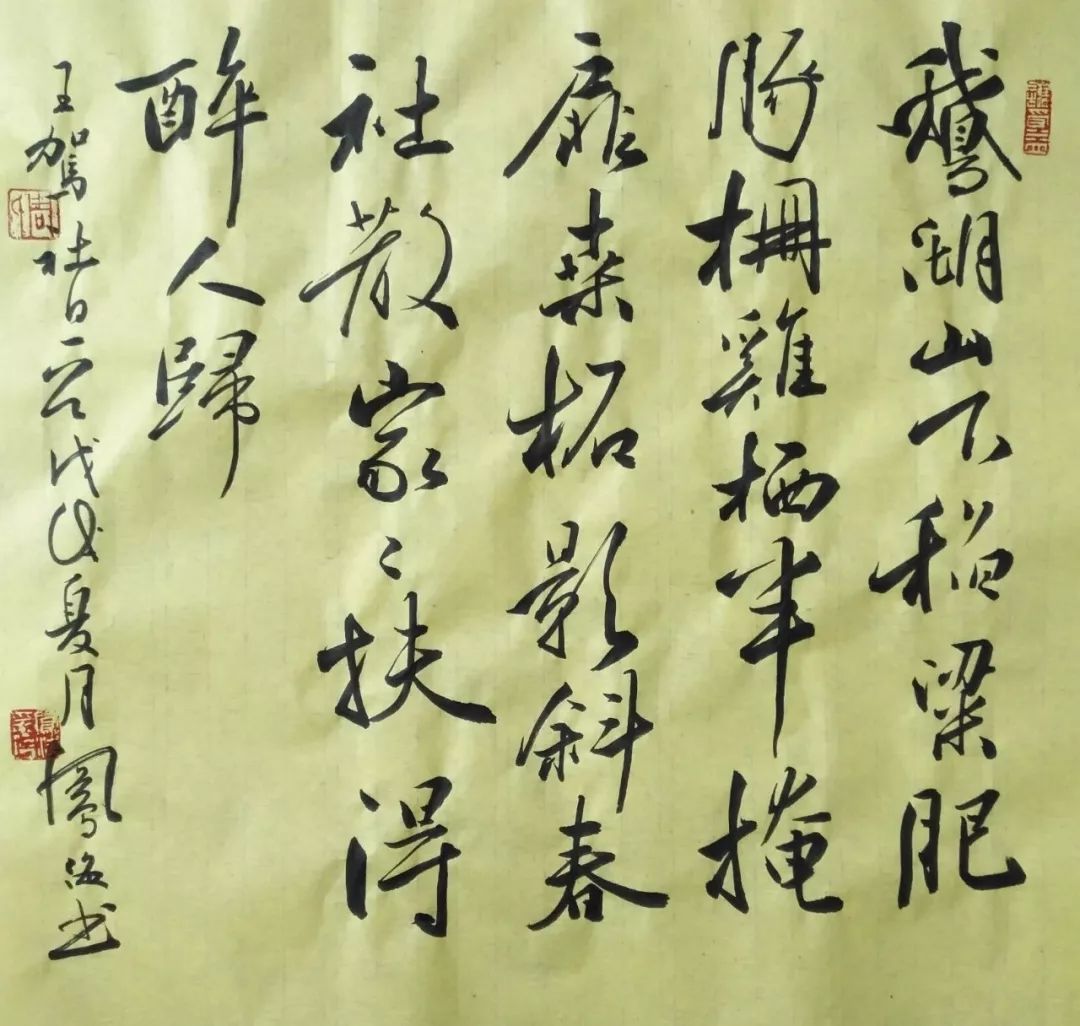 鵝湖山下稻粱肥
豚柵雞栖半掩
扉桑柘影斜春
社散家〻扶得
醉人歸
王駕社日一首戊戌夏月鳳书